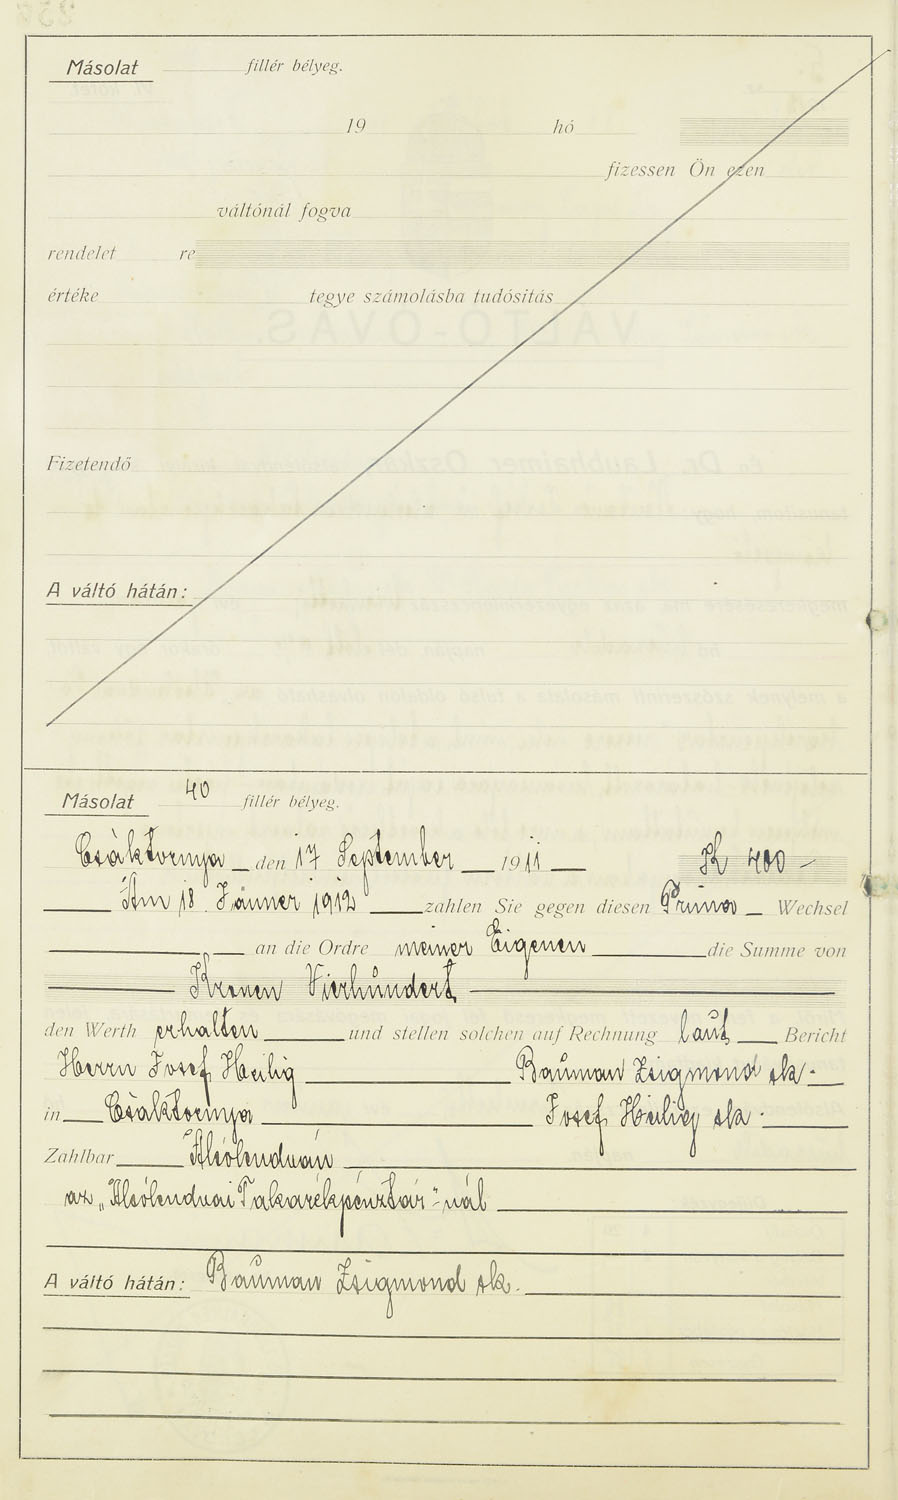 Másolat fillér bélyeg.
19 hó
fizessen Ön ezen
váltónál fogva
rendelet re
értéke tegye számolásba tudósitás
Fizetendő
A váltó hátán:
Másolat 40 fillér bélyeg.
Csáktornya den 17 September 1911 K 400 –
Am 18. Jänner 1912 zahlen Sie gegen diesen Prima Wechsel
an die Ordre meiner Eigenen die Summe von
Kronen Vierhundert
den Werth erhalten und stellen solchen auf Rechnung laut Bericht
Herrn Josef Heilig Bauman Zsigmond sk.
in Csáktornya Josef Heilig sk.
Zahlbar Alsólendván
az „Alsólendvai Takarékpénztár"-nál
A váltó hátán: Bauman Zsigmond sk.